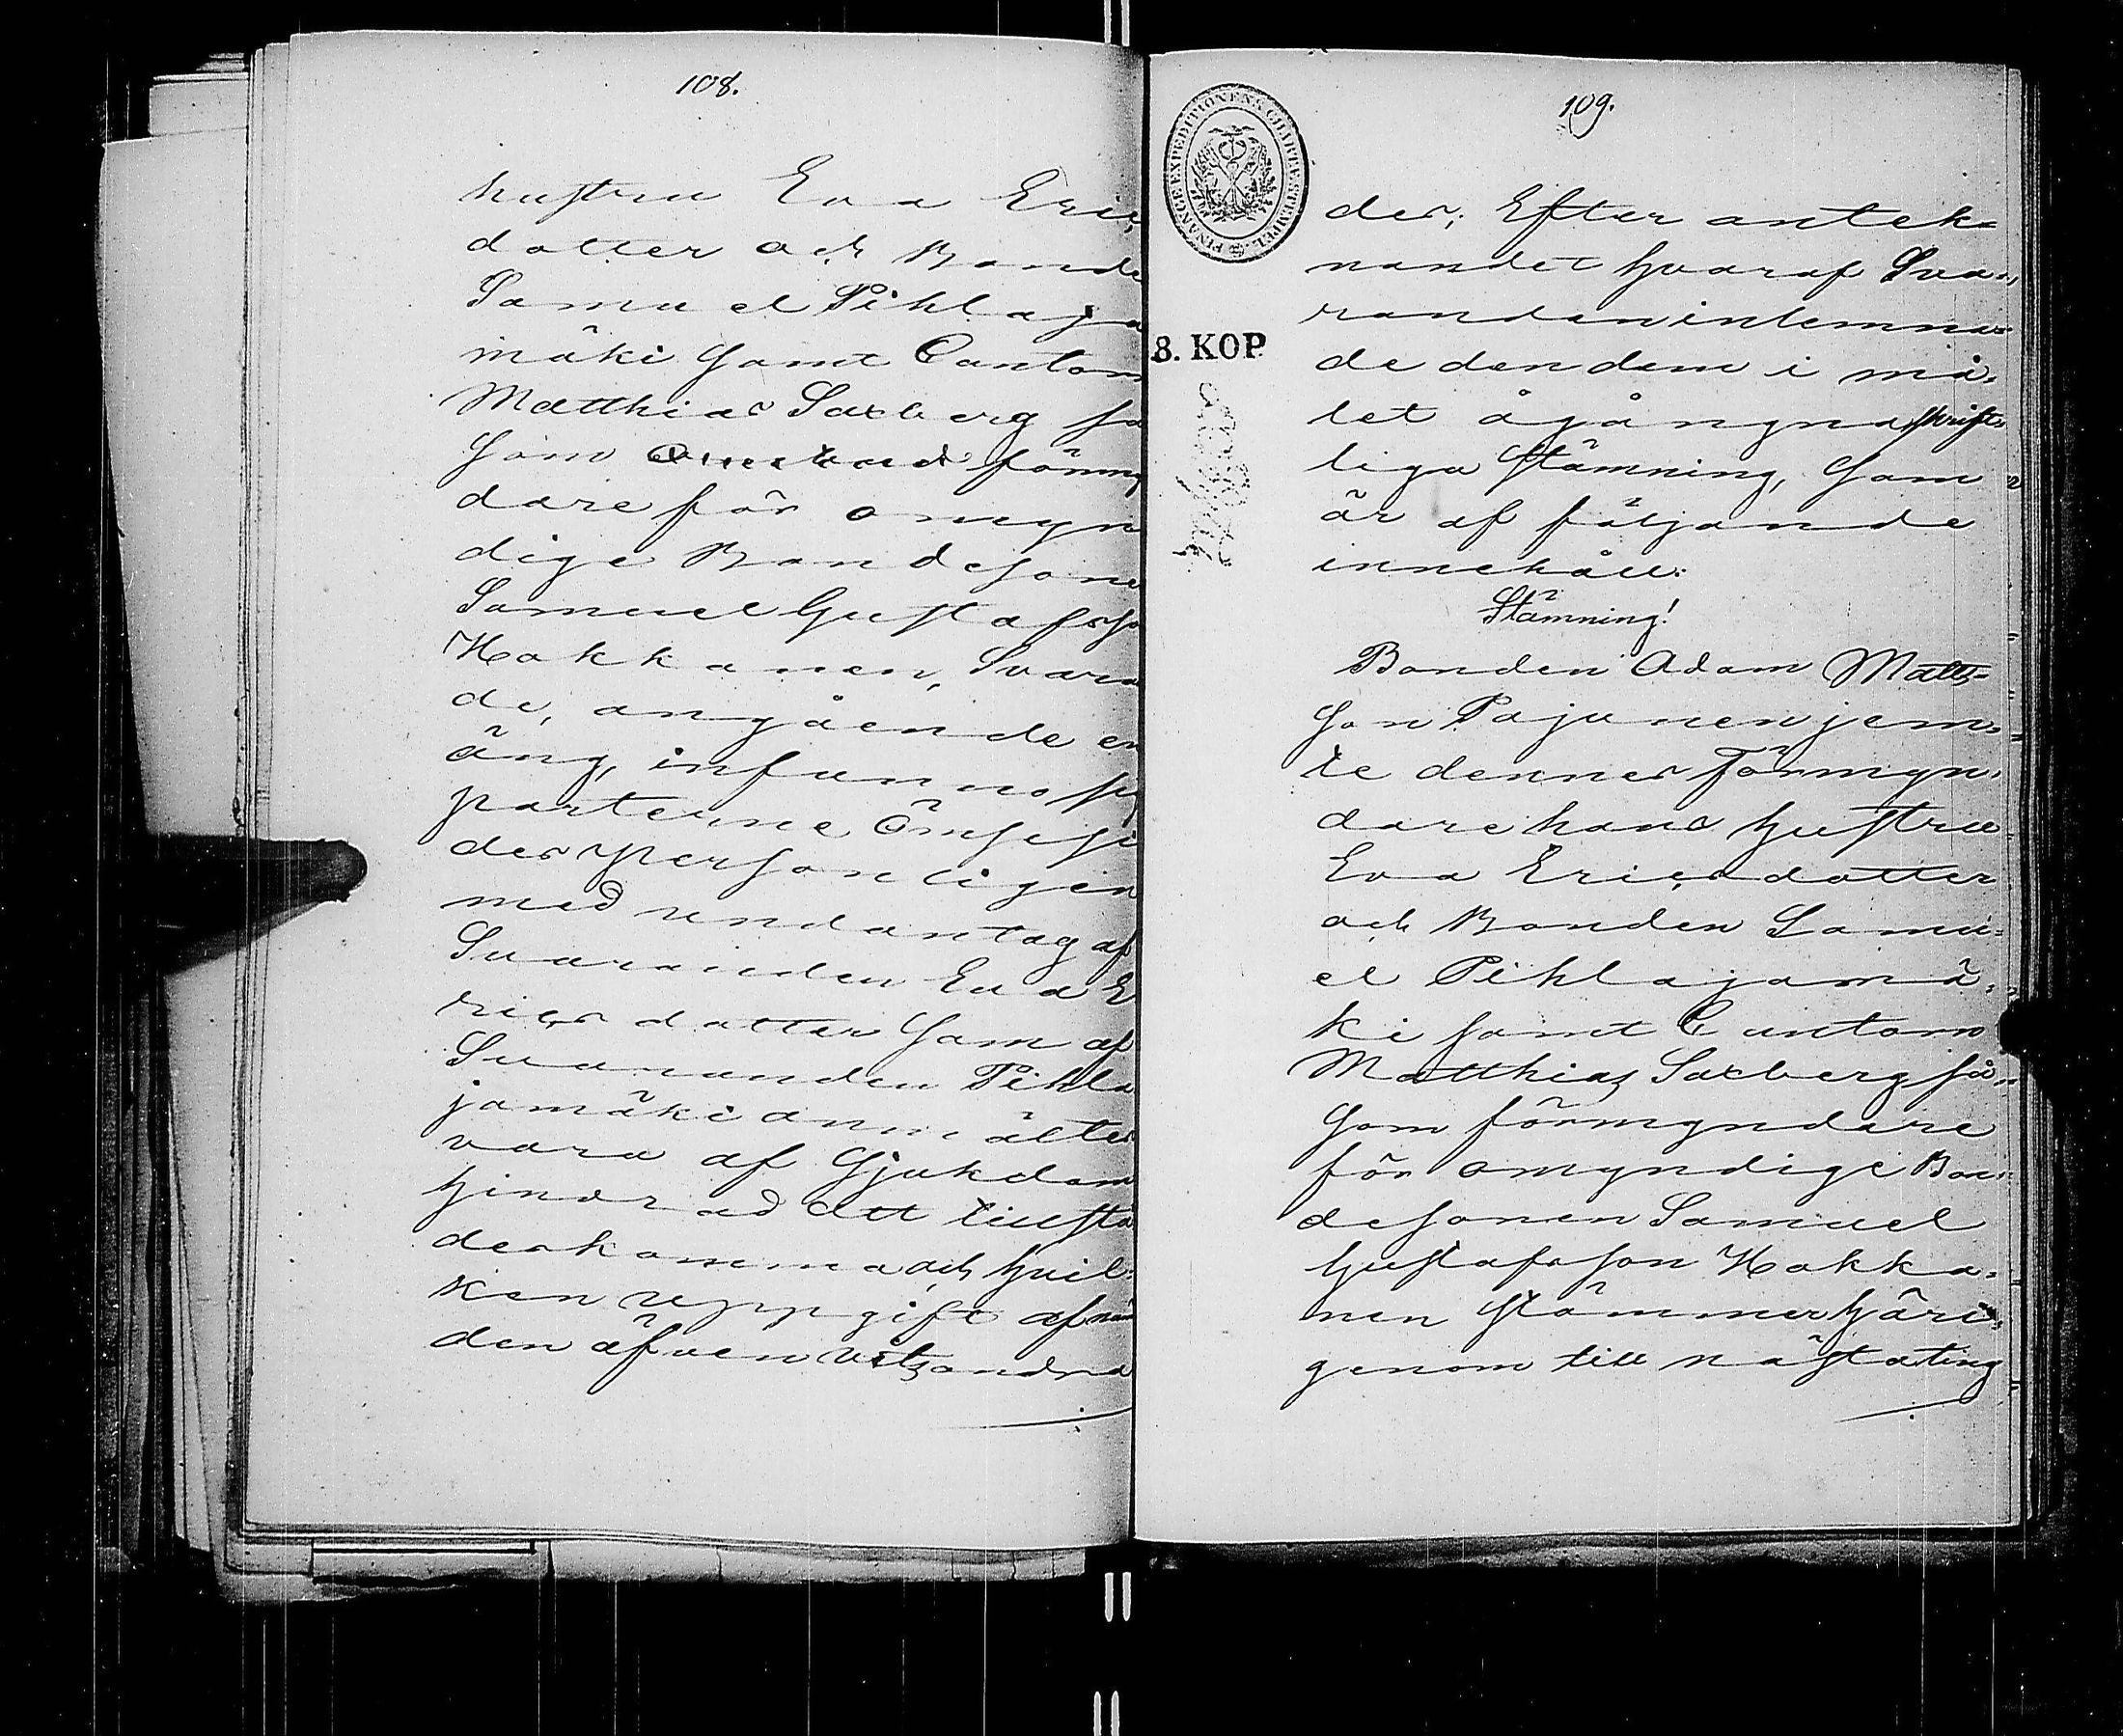 108.
hustru Eva Eric
dotter och Bonde
Samuel Pihlaja
mäki samt Cantorn
Matthias Saxberg så
som förmyn
dare för omyn
dige Bondesone
Samuel Gustafsso
Hokkanen, Svara
de, angående en
äng, infunno sig
parterne ömsesi
des personligen
med undantag af
Svaranden Eva E
ricsdotter som af
Svaranden Pihla
jamäki anmältes
vara af Sjukdom
hindrad att tillstä
deskomma, och hvil-
ken uppgift af när
den äfven vitsordra
109.
FINANCE EXPEDITIONENS CHARTE STEMPEL
8. KOP
der; Efter antek-
nandet hvaraf Sva-
randen inlemna-
de den dem i må-
let åjångna skrift-
liga Stämning, som
är af följande
innehåll:
Stämning!
Bonden Adam Matts-
son Pajunen jem-
te dennes Förmyn-
dare hans hustru
Eva Ericsdotter
och Bonden Samu-
el Pihlajamä-
ki samt Cantorn
Matthias Saxberg så-
som förmyndare
för omyndige Bon-
desonen Samuel
Gustafsson Hokka-
nen stämmes häri-
genom till nästa ting